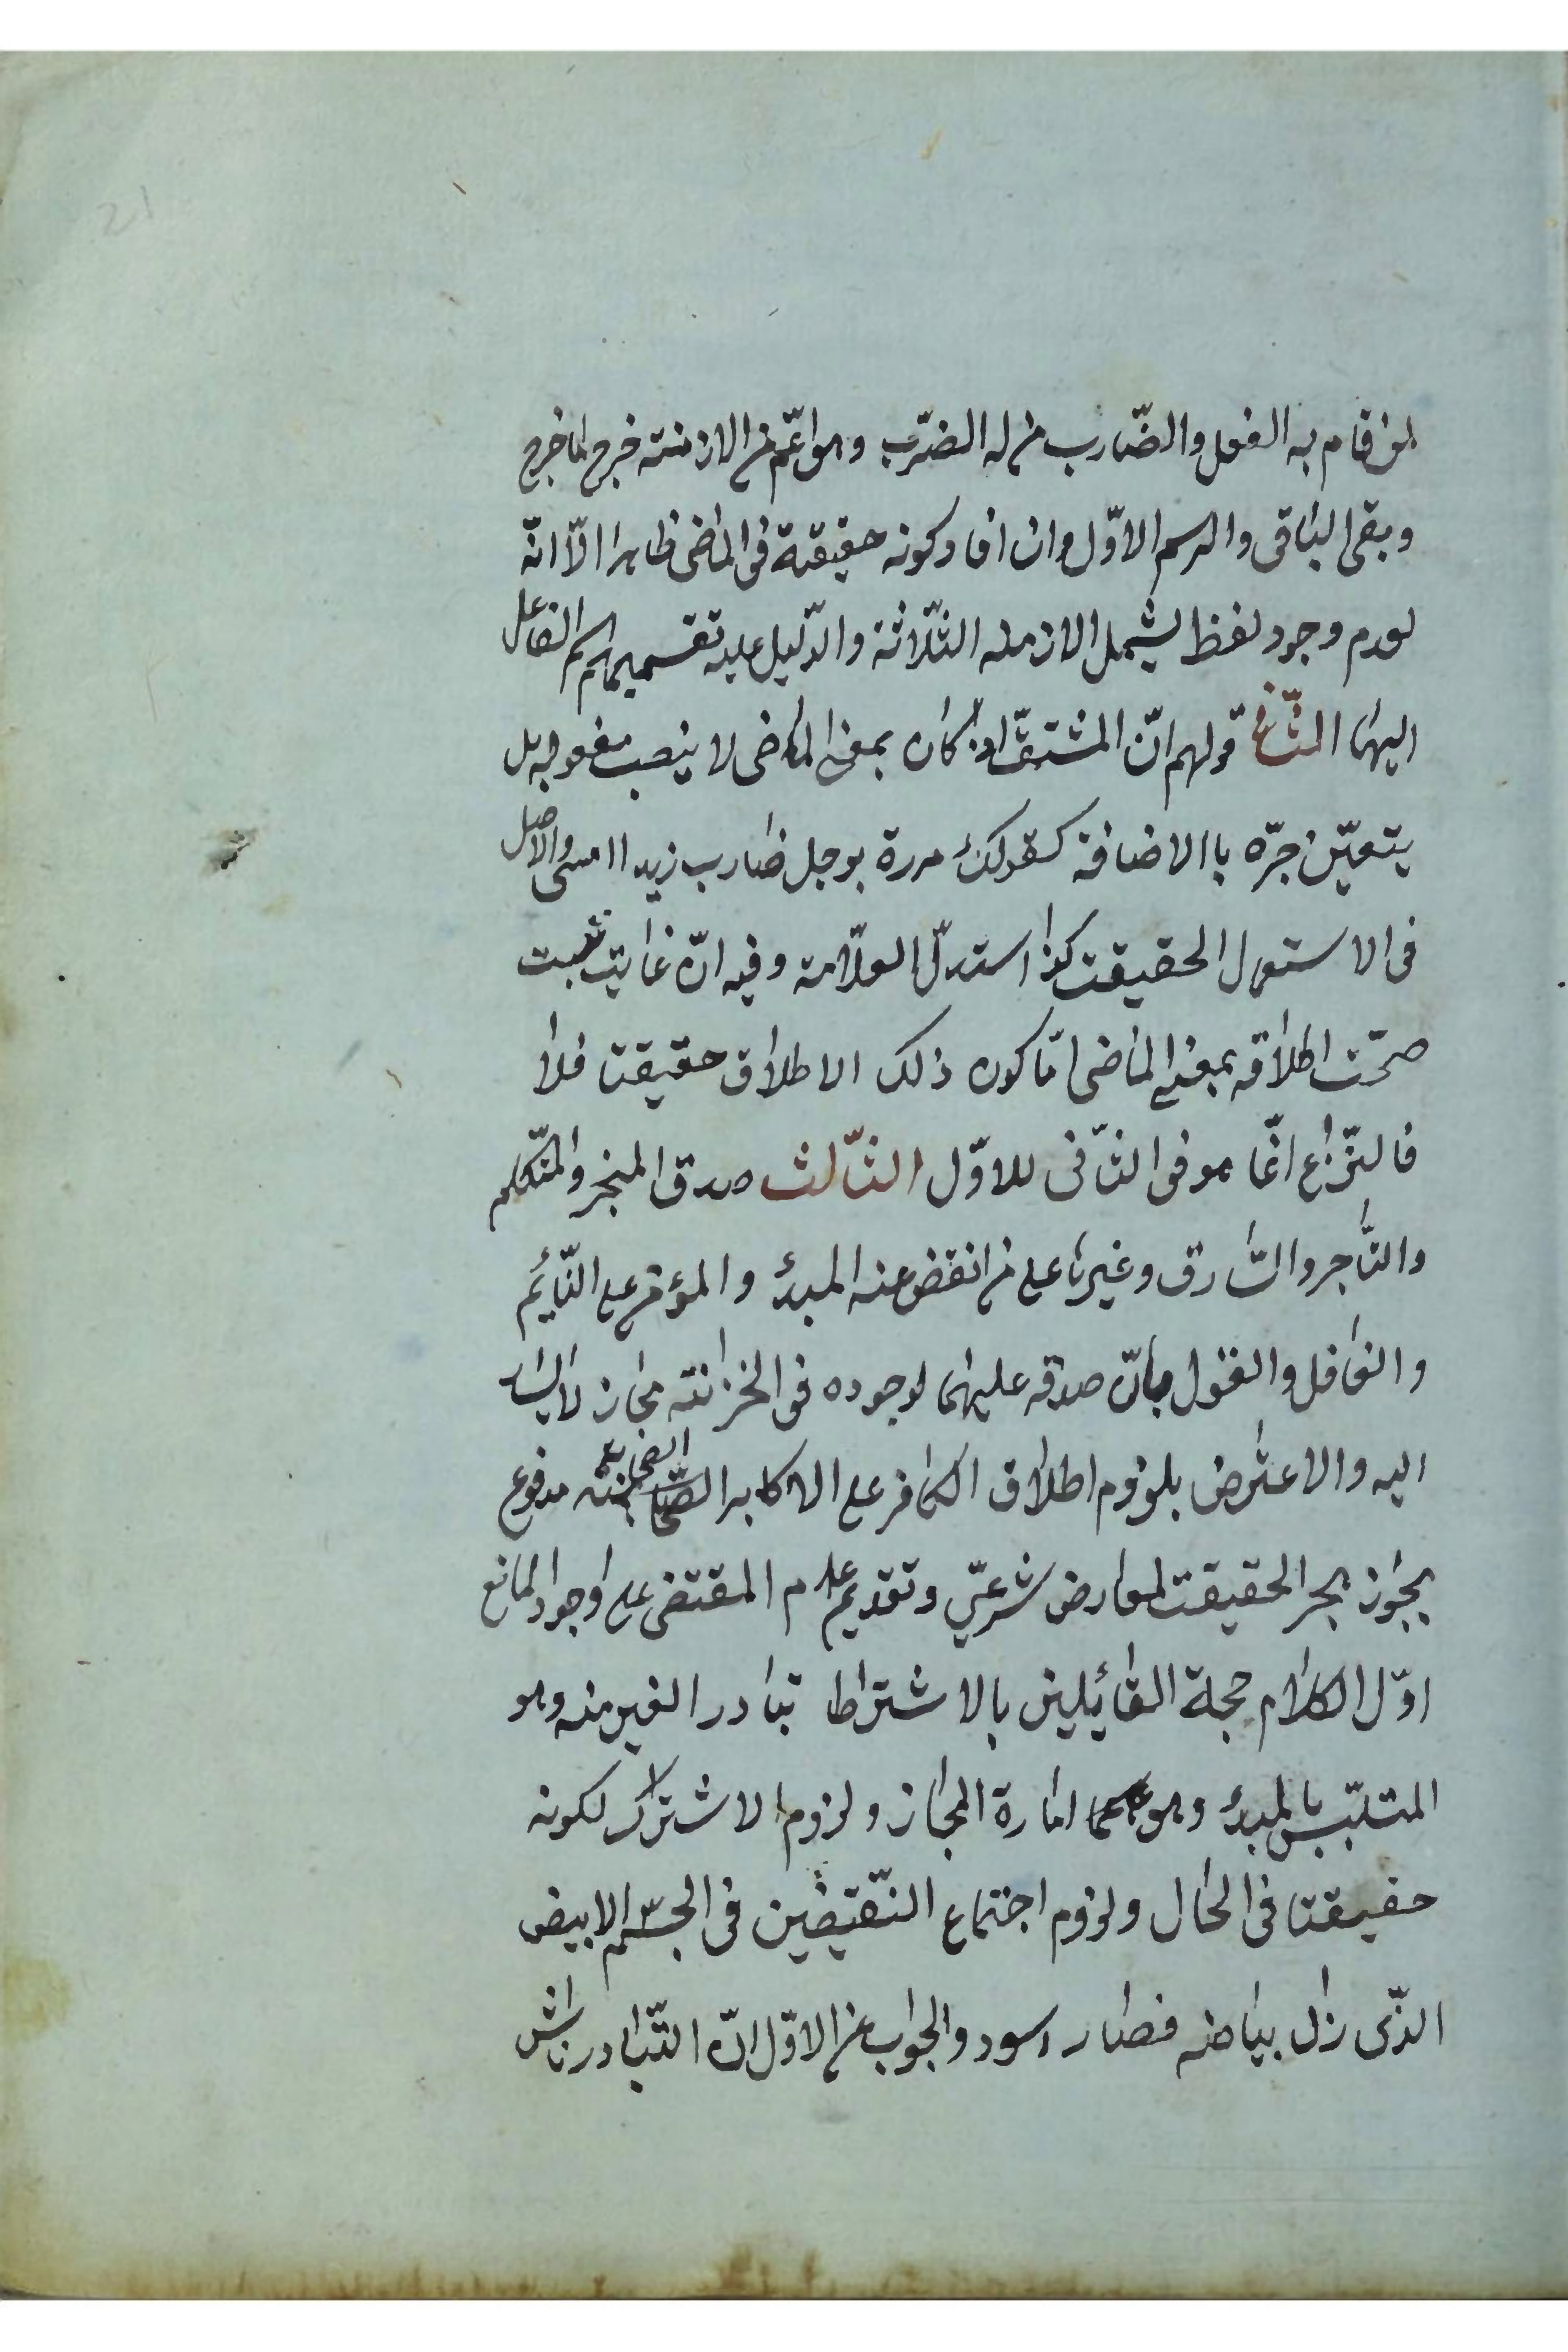 لمن قام به الفعل والضّارب من له الضّرب وهو اعّم من الازمنته خرج ما خرج
وبقى الباقى والرسم الاوّل وان افاد كونه حقيقة فى الماضى ظاهرا الّا انّه
لعدم وجود لفظ يشمل الازمنه الثّلاثة والدّليل عليه تقسيمهم اسم الفاعل
اليهما الثّانى قولهم انّ المشتقّ اذا كان بمعنى الماضى لا ينصب مفعوله بل
يتعيّن جرّه باالاضافة كقولك مررة بوجل ضارب زيد اامس والاصل
فى الاستعمال الحقيقت كذا استدلّ العلّامة وفيه انّ غايت ثبت
صحّت اطلاقه بمعنى الماضى امّا كون ذلك الاطلاق حقيقتا فلا
فالنّزاع انّما هو فى الثّانى للاوّل الثّالث صدق المخبر والمتّكلم
والتّاجر والسّارق وغيرها على من انقض عنه المبدء والمؤمن على النّائم
والغافل والقول بانّ صدقه عليهما لوجوده فى الخزانته مجاز لا
اليه والاعتراض بلزوم اطلاق الكافر على الاكابر الصّحابة مدفوع
بجواز هجر الحقيقت لعوارض شرعىّ وتقديم عدم المقتضى على وجود المانع
اوّل الكلام حجة القائلين بالاشتراط تبادر الغير منه وهو
المتلبّس بالمبدء وهو امارة المجاز ولزوم الاشتراك لكونه
حقيقتا فى الحال ولزوم اجتماع النّقيضين فى الجسم الابيض
الذّى زال بياضه فصار اسود والجواب عن الاوّل انّ التّبادر ناش